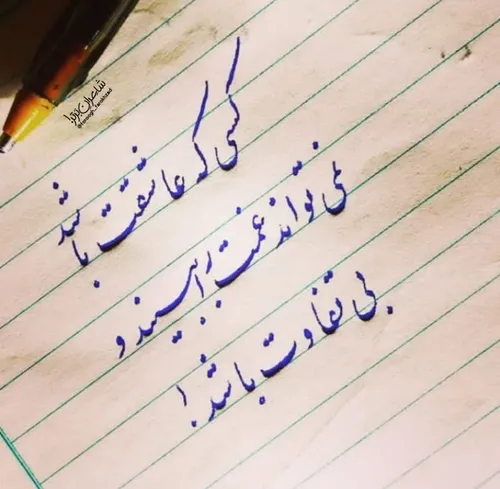 کسی که عاشقت باشد
نمی تواند غمت را ببیند و
بی تفاوت باشد!